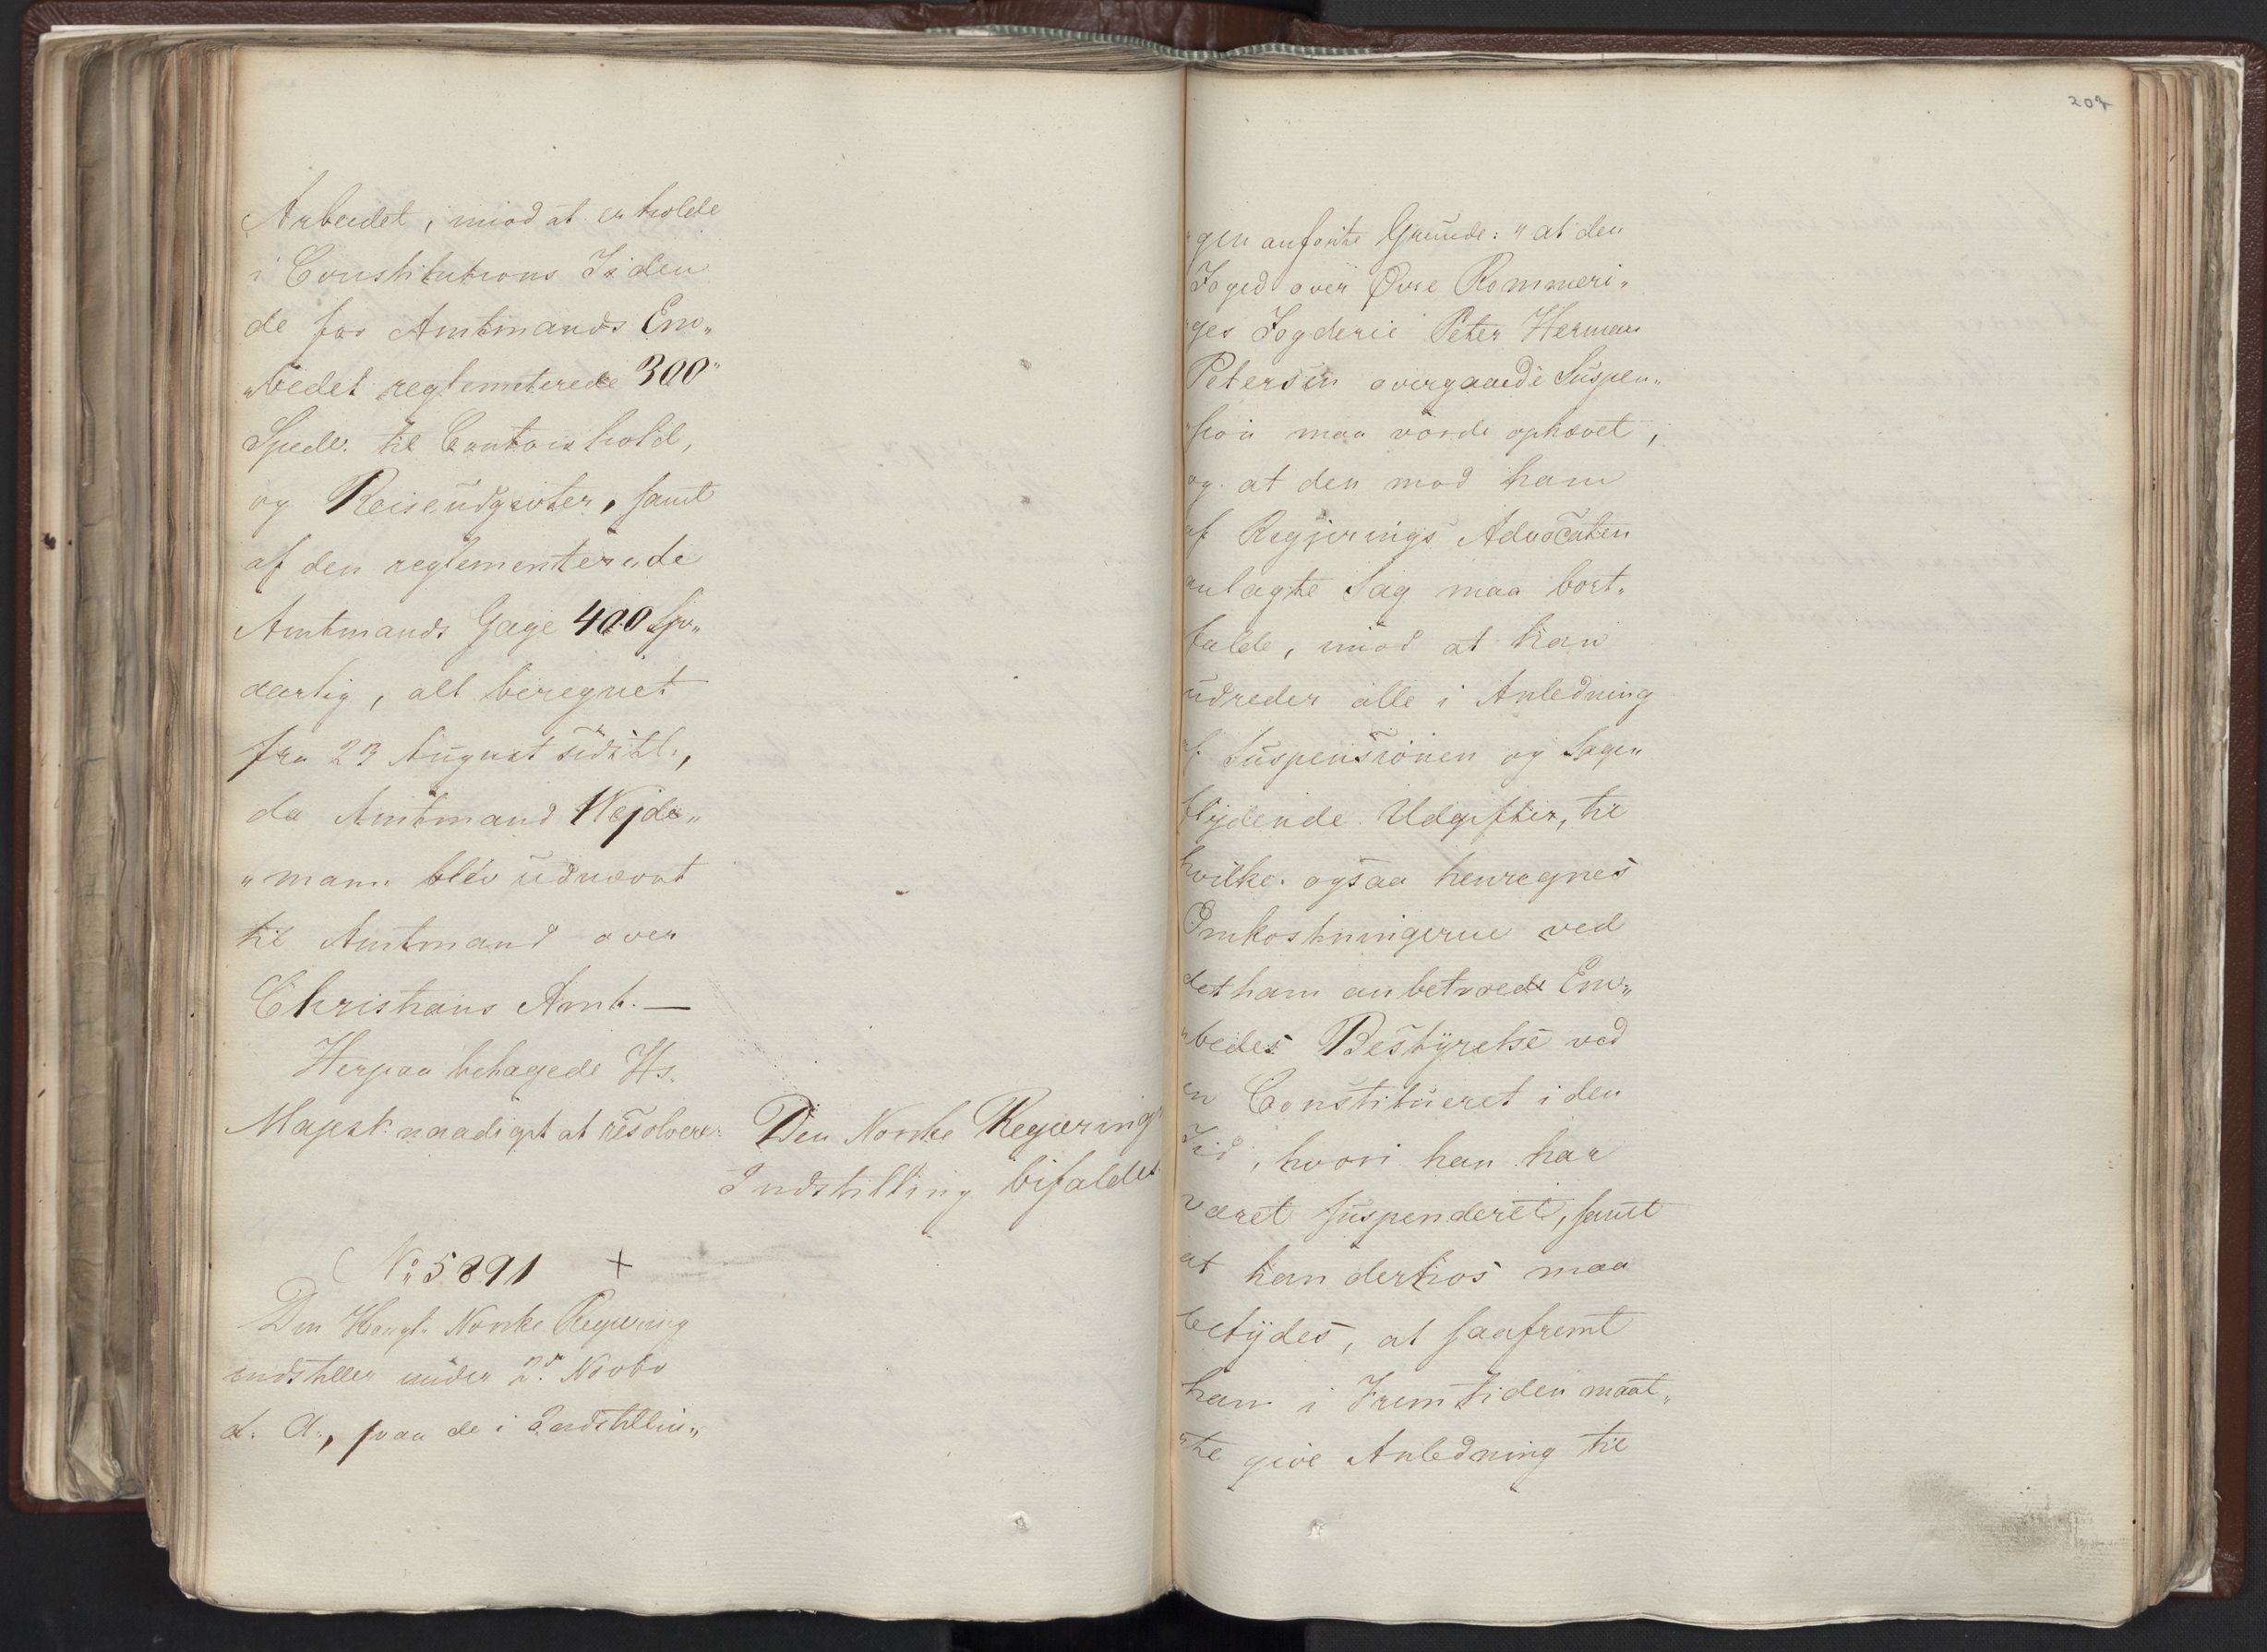 Arbeidet, imod at erholde
i Constitutions Tiden
de for Amtmands Em„
„bedet reglementerede 300„
Spedr. til Contoirhold,
og Reiseudgivter, samt
af den reglementerede
Amtmands Gage 400 Spd„
aarlig, alt beregnet
fra 23 August sidstl.,
da Amtmand Wejde„
„mann blev udnævnt
til Amtmand over
Christians Amt. —
Herpaa behagede Hs.
Majest. naadigst at resolvere:
Den Norske Regjerings
Indstilling bifaldes
No. 5891 +
Den Kongl. Norske Regjering
indstiller under 2d. Novbr
d. A., paa de i Indstillin„
207
„gen anførte Grunde: „at den
Foged over Øvre Rommeri„
„ges Fogderie Peter Herman
Petersen overgaaede Suspen„
„sion maa vorde ophævet,
og at den mod ham
af Regjerings Advocaten
anlagte Sag maa bort„
falde, imod at han
udreder alle i Anledning
af Suspensionen og Sagen
flydende Udgifter, til
hvilke ogsaa henregnes
Omkostningerne ved
det ham anbetroede Em„
„bedes Bestyrelse ved
en Constitueret i den
Tid, hvori han har
været suspenderet, samt
at han derhos maa
betydes, at saafremt
han i Fremtiden maat„
„te give Anledning til